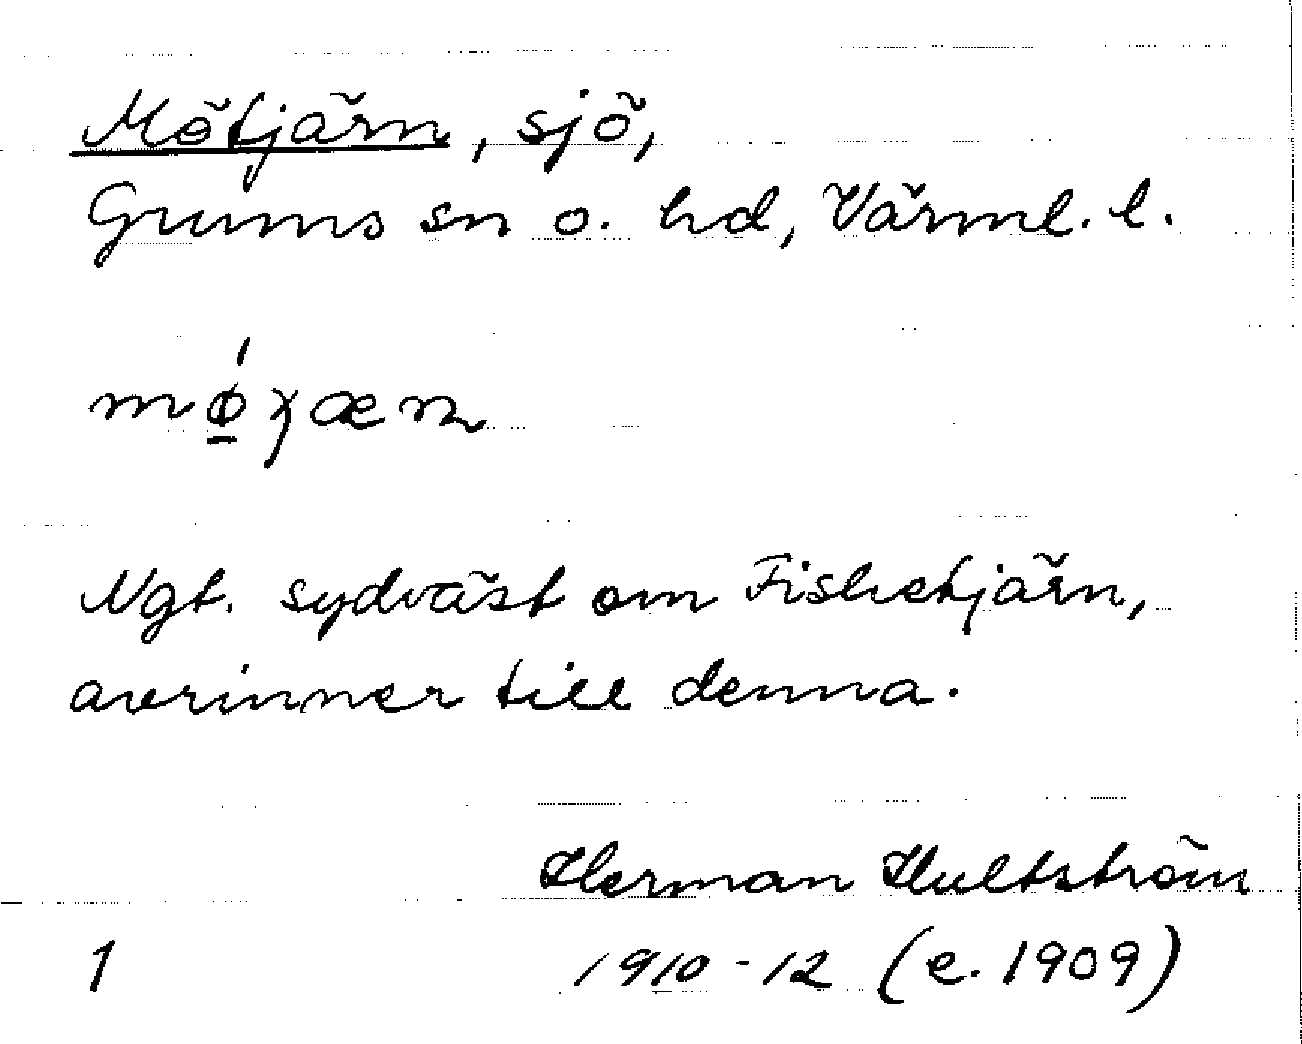 Mötjärn, sjö,
Grums sn o. hd, Värml. l.
mǿ̲χæn
Ngt. sydväst om Fisketjärn,
avrinner till denna.
Herman Hultström
1 1910-12 (e. 1909)